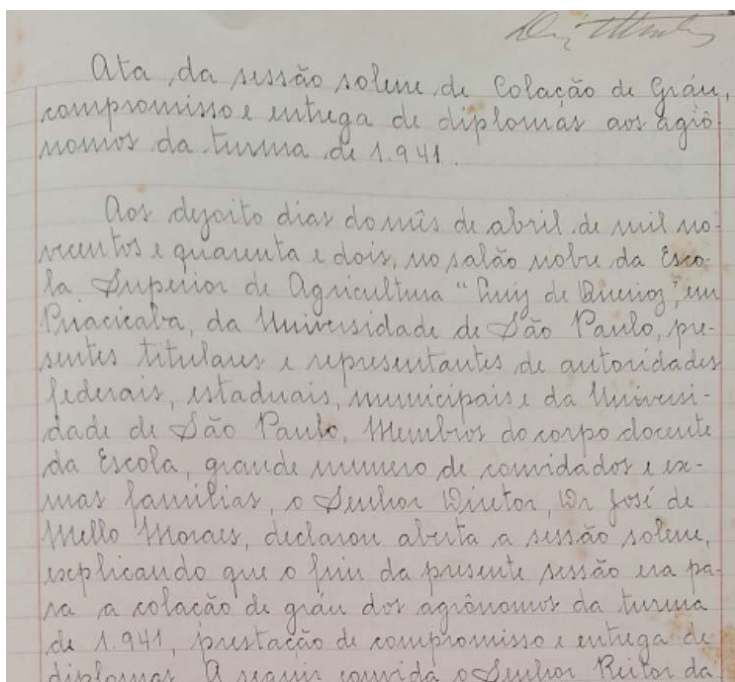 Ata da sessão solene de Colação de Gráu,
compromisso e entrega de diplomas aos agrô-
nomos da turma de 1.941.
Aos dezoito dias do mês de abril de mil no-
vecentos e quarenta e dois, no salão nobre da Esco-
la Superior de Agricultura "Luiz de Queiroz", em
Piracicaba, da Universidade de São Paulo, pre-
sentes titulares e representantes de autoridades
federais, estaduais, municipais e da Universi-
dade de São Paulo, Membros do corpo docente
da Escola, grande numero de convidados e ex-
mas familias, o Senhor Diretor, Dr José de
Mello Moraes, declarou aberta a sessão solene,
explicando que o fim da presente sessão era pa-
ra a colação de gráu dos agrônomos da turma
de 1.941, prestação de compromisso e entrega de
diplomas. A seguir convida o Senhor Reitor da